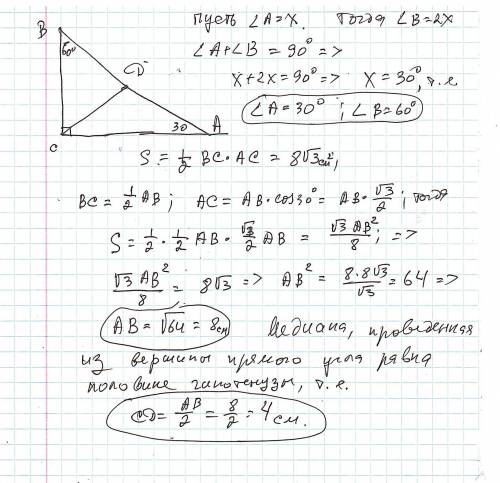 Пусть ∠A=X. Тогда ∠B=2X
B
60°
D
C
30
A
∠A+∠B = 90° =>
X+2X=90° => X=30°, т.е
∠A=30° ; ∠B=60°
S = 1/2 BC·AC = 8√3 см²,
BC = 1/2 AB; AC = AB·cos30° = AB·√3/2; тогда
S = 1/2 · 1/2 AB · √3/2 AB = √3 AB²/8; =>
√3 AB²/8 = 8√3 => AB² = 8·8√3/√3 = 64 =>
AB = √64 = 8см Медиана, проведенная
из вершины прямого угла равна
половине гипотенузы, т.е.
CD = AB/2 = 8/2 = 4 см.